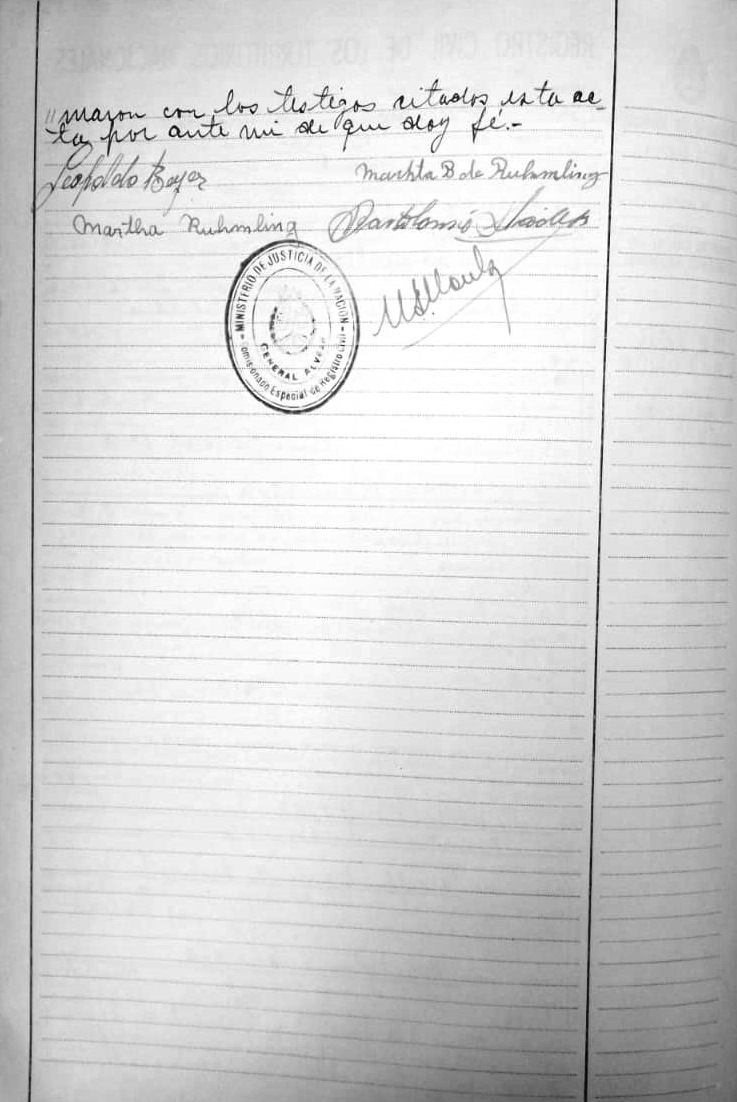 REGISTRO CIVIL DE LOS TERRITORIOS NACIONALES
"maron con los testigos citados, esta ac-
ta por ante mi de que doy fé.-
Leopoldo Beyer
Markta B de Ruhmling
Martha Ruhmling
Bartolomé
MINISTERIO DE JUSTICIA DE LA NACION
GENERAL ALVEAR
Comisionado Especial de Registro Civil